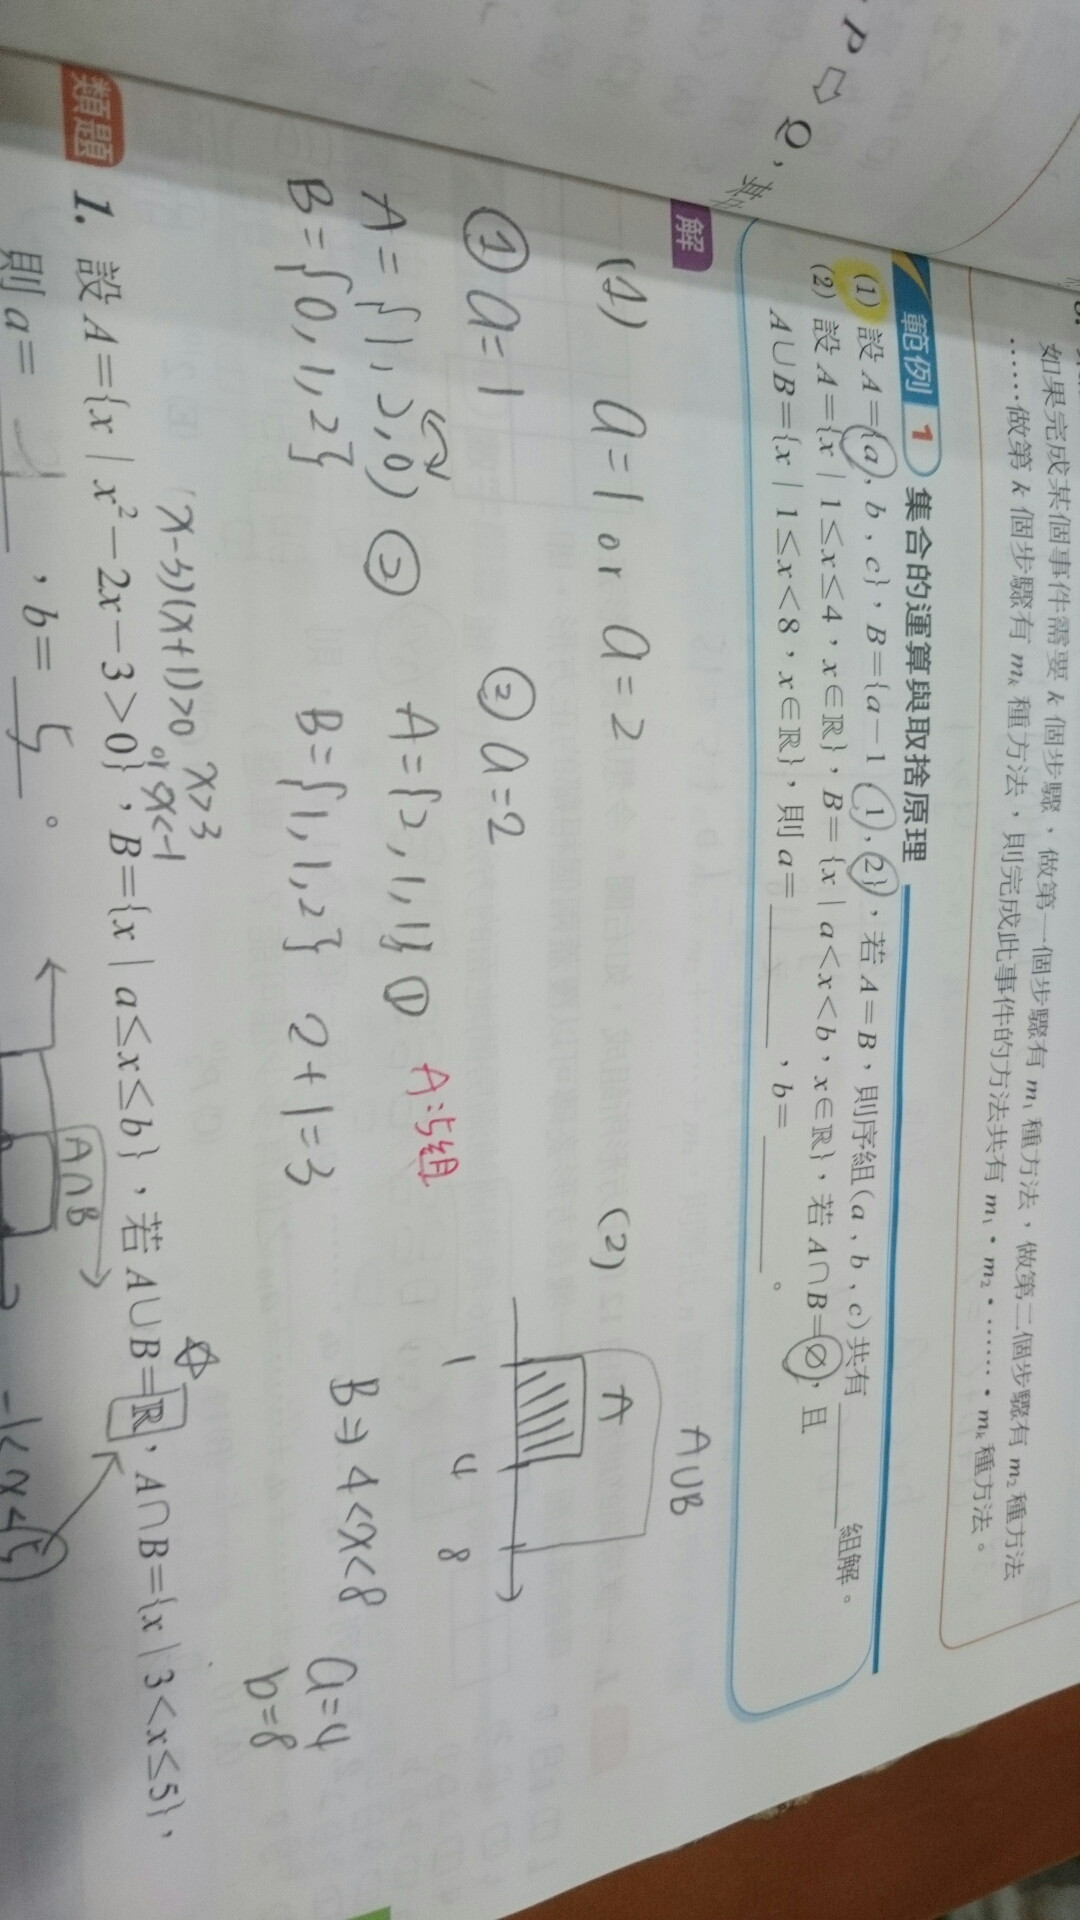 P ⇨ Q，其中
如果完成某個事件需要 k 個步驟，做第一個步驟有 m₁ 種方法，做第二個步驟有 m₂ 種方法
……做第 k 個步驟有 mₖ 種方法，則完成此事件的方法共有 m₁·m₂·……·mₖ 種方法。
範例 1 集合的運算與取捨原理
(1) 設 A={a, b, c}, B={a−1, 1, 2}，若 A=B，則序組(a, b, c)共有______組解。
(2) 設 A={x | 1≤x≤4, x∈ℝ}, B={x | a<x<b, x∈ℝ}，若 A∩B=∅，且
A∪B={x | 1≤x<8, x∈ℝ}，則 a=______，b=______。
解
(1) a=1 or a=2
① a=1
A={1, 2, 0} ②
B={0, 1, 2}
② a=2
A={2, 1, 1} ①
B={1, 1, 2} 2+1=3
(2)
A∪B
A
1 4 8
B⇒4<x<8
a=4
b=8
(x-3)(x+1)>0 x>3
or x<-1
類題
1. 設 A={x | x²−2x−3>0}, B={x | a≤x≤b}，若 A∪B=ℝ, A∩B={x | 3<x≤5}，
則 a= -1，b= 5。
A∩B